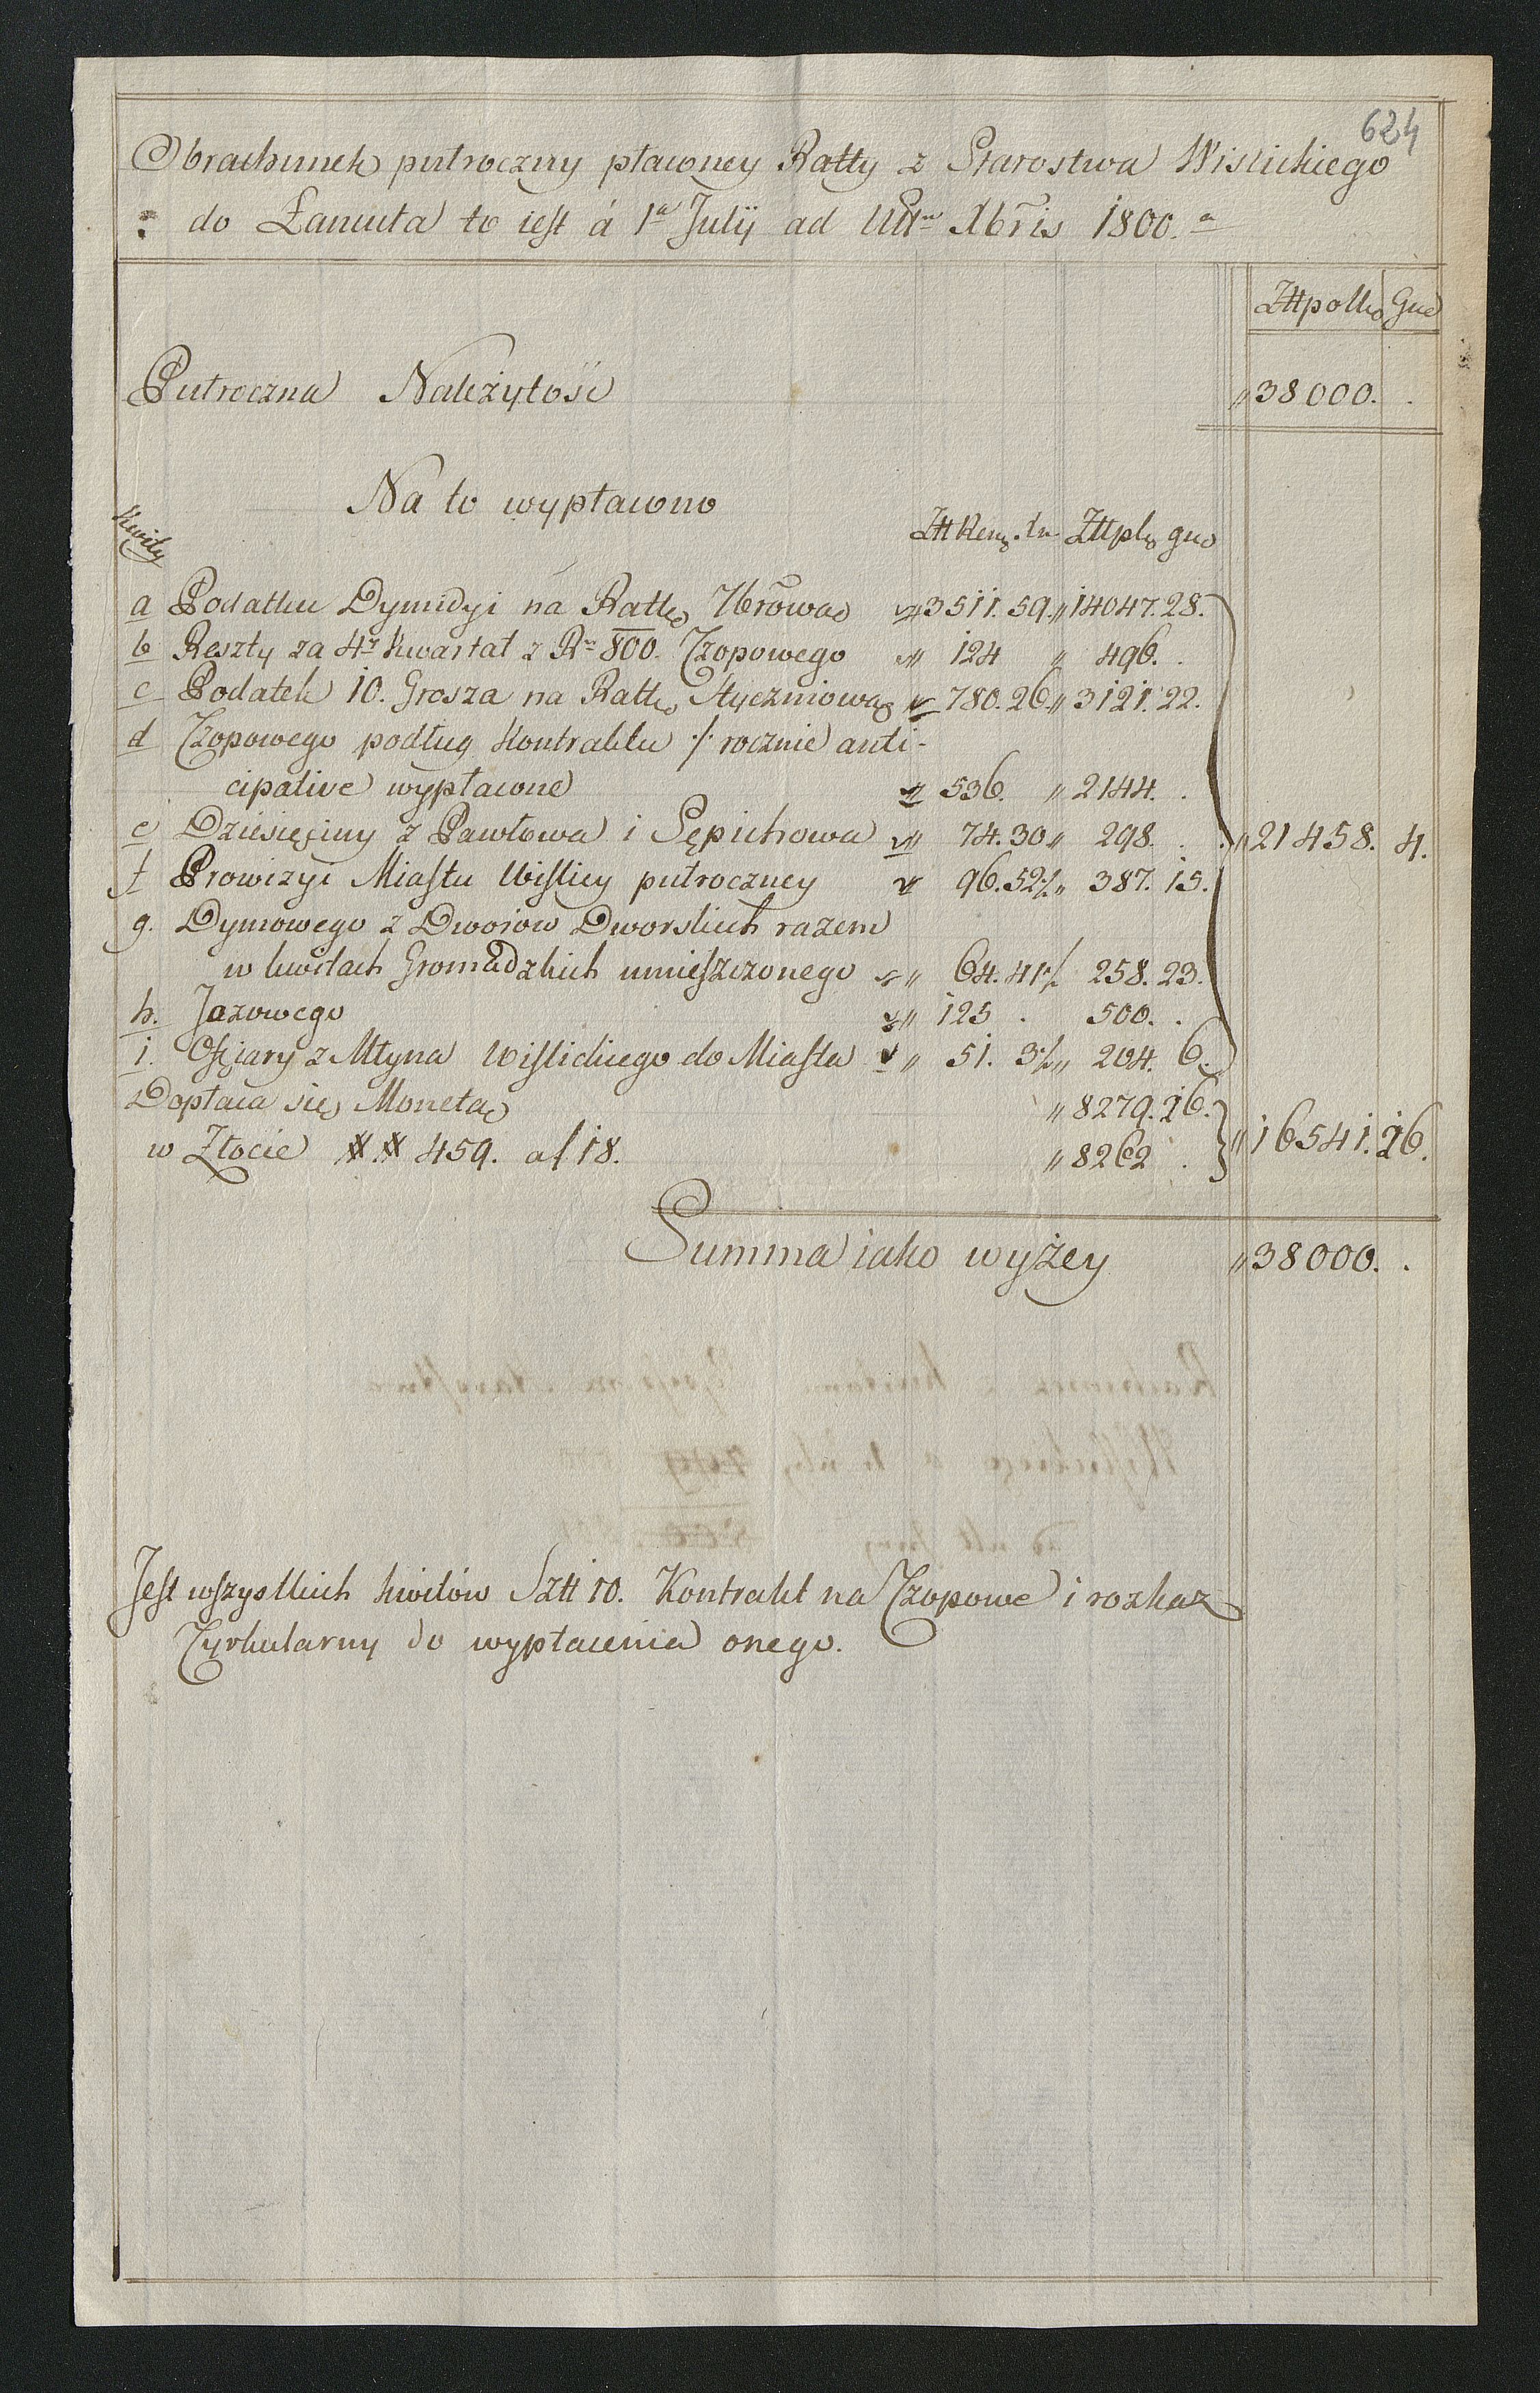 624
Obrachunek pułroczny płaconey Ratty z Starostwa Wislickiego
do Łancuta to iest á 1ª Julij ad Ult: Xbris 1800.
Złłpolh Grd
Pułroczna Należytośc „38000. .
Na to wypłacono
Kwity
Złł Ren. Złłpl gro
a Podatku Dymidyi na Rattę 7brową „3511. 59. „14047. 28.
b Reszty za 4ʳ Kwartał z R: 800. Czopowego „ 124 „ 496. .
c Podatek 10. Grosza na Rattę Styczniową „ 780. 26. „3121. 22.
d Czopowego podług Kontraktu ./. rocznie anti-
cipative wypłacone „ 536. „2144. .
e Dziesięciny z Pawłowa i Sępichowa „ 74. 30 „ 298. . „21458. 4.
f Prowizyi Miastu Wislicy pułroczney 96. 52/. „ 387. 15.
g. Dymowego z Dworów Dworskich razem
w kwitach Gromadzkich umieszczonego „ 64. 41/. 258. 23.
h. Jazowego „ 125 . 500. .
i. Ofiary z Młyna Wislickiego do Miasta „ 51. 3/. „ 204. 6.
Dopłaca się Monetą „8279. 26.
w Złocie ## 459. a f 18. „8262 . „16541. 26.
Summa iako wyżey „38000. .
Jest wszystkich kwitów Sztt 10. Kontrakt na Czopowe i rozkaz
Cyrkularny do wypłacenia onego.